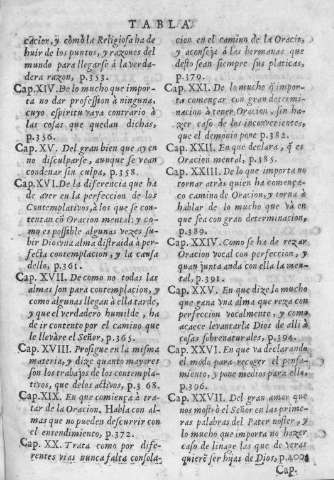 TABLA
cacier, y cōmo la Religiosa ha de
huir de los puntos, y razones del
mundo para llegarse à la verda-
dera razon, p.353.
Cap.XIV. De lo mucho que impor-
ta no dar profession à ninguna,
cuyo espiritu vaya contrario à
las cosas que quedan dichas,
p.356.
Cap. XV. Del gran bien que ay en
no disculparse, aunque se vean
condenar sin culpa, p.358.
Cap.XVI. De la diferencia que ha
de aver en la perfeccion de los
Contemplativos, à los que se con-
tentan cō Oracion mental: y co-
mo es possible algunas vezes su-
bir Dios vna alma distraida à per-
fecta contemplacion, y la causa
dello, p.361.
Cap. XVII. De como no todas las
almas son para contemplacion, y
como algunas llegan à ella tarde,
y que el verdadero humilde, ha
de ir contento por el camino que
le llevàre el Señor, p.365.
Cap. XVIII. Prosigue en la misma
materia, y dize quanto mayores
son los trabajos de los contempla-
tivos, que delos activos, p.368.
Cap.XIX. En que comiença à tra-
tar de la Oracion. Habla con al-
mas que no pueden discurrir con
el entendimiento, p.372.
Cap. XX. Trata como por dife-
rentes vias nunca falta consola-
cion en el camino de la Oraciō,
y aconseja à las hermanas que
desto sean siempre sus platicas,
p.379.
Cap. XXI. De lo mucho q̄ impor-
ta començar con gran determi-
nacion à tener Oracion, sin ha-
zer caso de los inconvenientes,
que el demonio pone p.382.
Cap. XXII. En que declara, q̄ es
Oracion mental, p.385.
Cap. XXIII. De lo que importa no
tornar atràs quien ha comença-
do camino de Oracion, y torna à
hablar de lo mucho que và en
que sea con gran determinacion,
p.389.
Cap. XXIV. Como se ha de rezar
Oracion vocal con perfeccion, y
quan junta anda con ella la men-
tal, p.391.
Cap. XXV. En que dize lo mucho
que gana vna alma que reza con
perfeccion vocalmente, y como
acaece levantarla Dios de alli à
cosas sobrenaturales, p.394.
Cap. XXVI. En que va declarando
el modo para recoger el pensa-
miento, y pone medios para ello,
p.396.
Cap. XXVII. Del gran amor que
nos mostrò el Señor en las prime-
ras palabras del Pater noster, y
lo mucho que importa no hazer
caso de linage las que de veras
quierē ser hijas de Dios, p.400.
Cap.